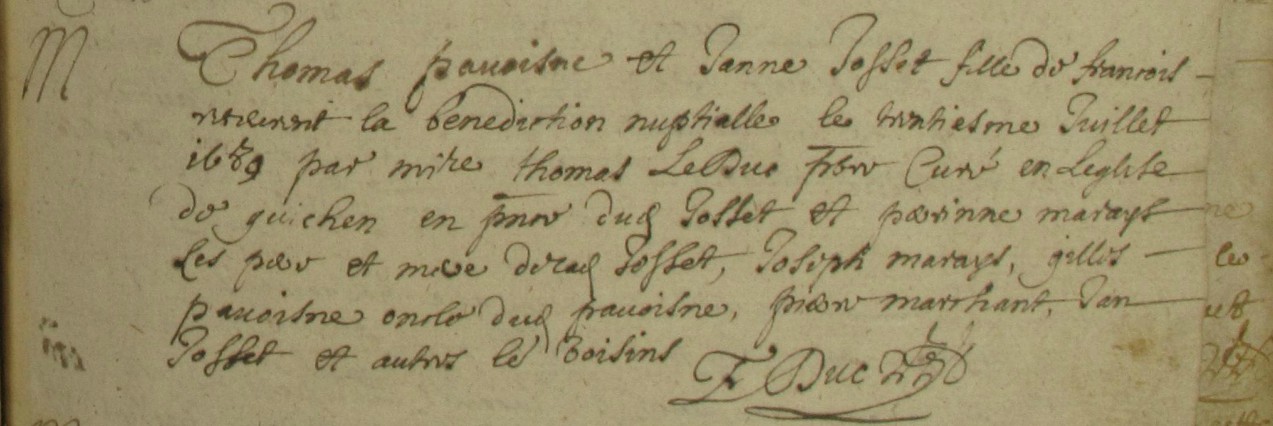 M Thomas pavoisne et Janne Josset fille de francois
receurent la benediction nuptialle le trentiesme Juillet
1689 par mire thomas LeDuc pbre Curé en Leglise
de guichen en pnce dud Josset et perrinne marays
Les pere et mere de lad Josset, Joseph marays, gilles
pavoisne oncle dud pavoisne, pierre marchant, Jan
Josset et autres les voisins
T Duc